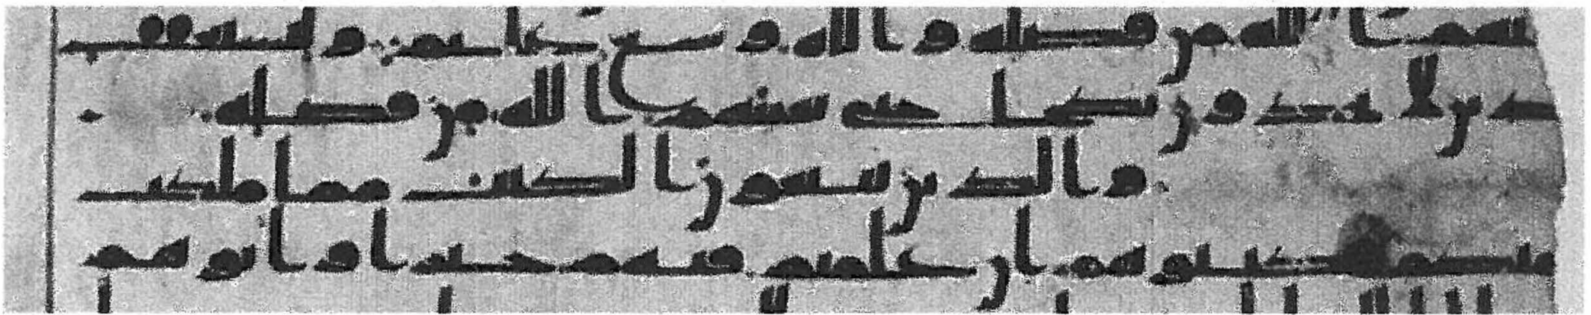 يغنهم الله من فضله والله وسع عليم وليستعفف
الذين لا يجدون نكاحا حتى يغنيهم الله من فضله
والذين يبتغون الكتب مما ملكت
ايمنكم فكتبوهم ان علمتم فيهم خيرا واتوهم